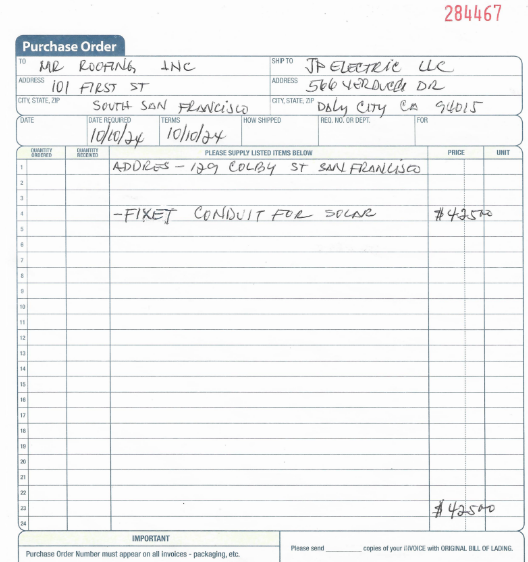 284467
Purchase Order
TO MR ROOFING INC SHIP TO JP ELECTRIC LLC
ADDRESS 101 FIRST ST ADDRESS 566 VERDUCCI DR
CITY, STATE, ZIP SOUTH SAN FRANCISCO CITY, STATE, ZIP Daly City CA 94015
DATE DATE REQUIRED TERMS HOW SHIPPED REQ. NO. OR DEPT. FOR
10/10/24 10/10/24
QUANTITY ORDERED QUANTITY RECEIVED PLEASE SUPPLY LISTED ITEMS BELOW PRICE UNIT
1 ADDRES - 129 COLBY ST SAN FRANCISCO
2
3
4 -FIXET CONDUIT FOR SOLAR $42500
5
6
7
8
9
10
11
12
13
14
15
16
17
18
19
20
21
22
23 $42500
24
IMPORTANT
Purchase Order Number must appear on all invoices - packaging, etc.
Please send ________ copies of your INVOICE with ORIGINAL BILL OF LADING.